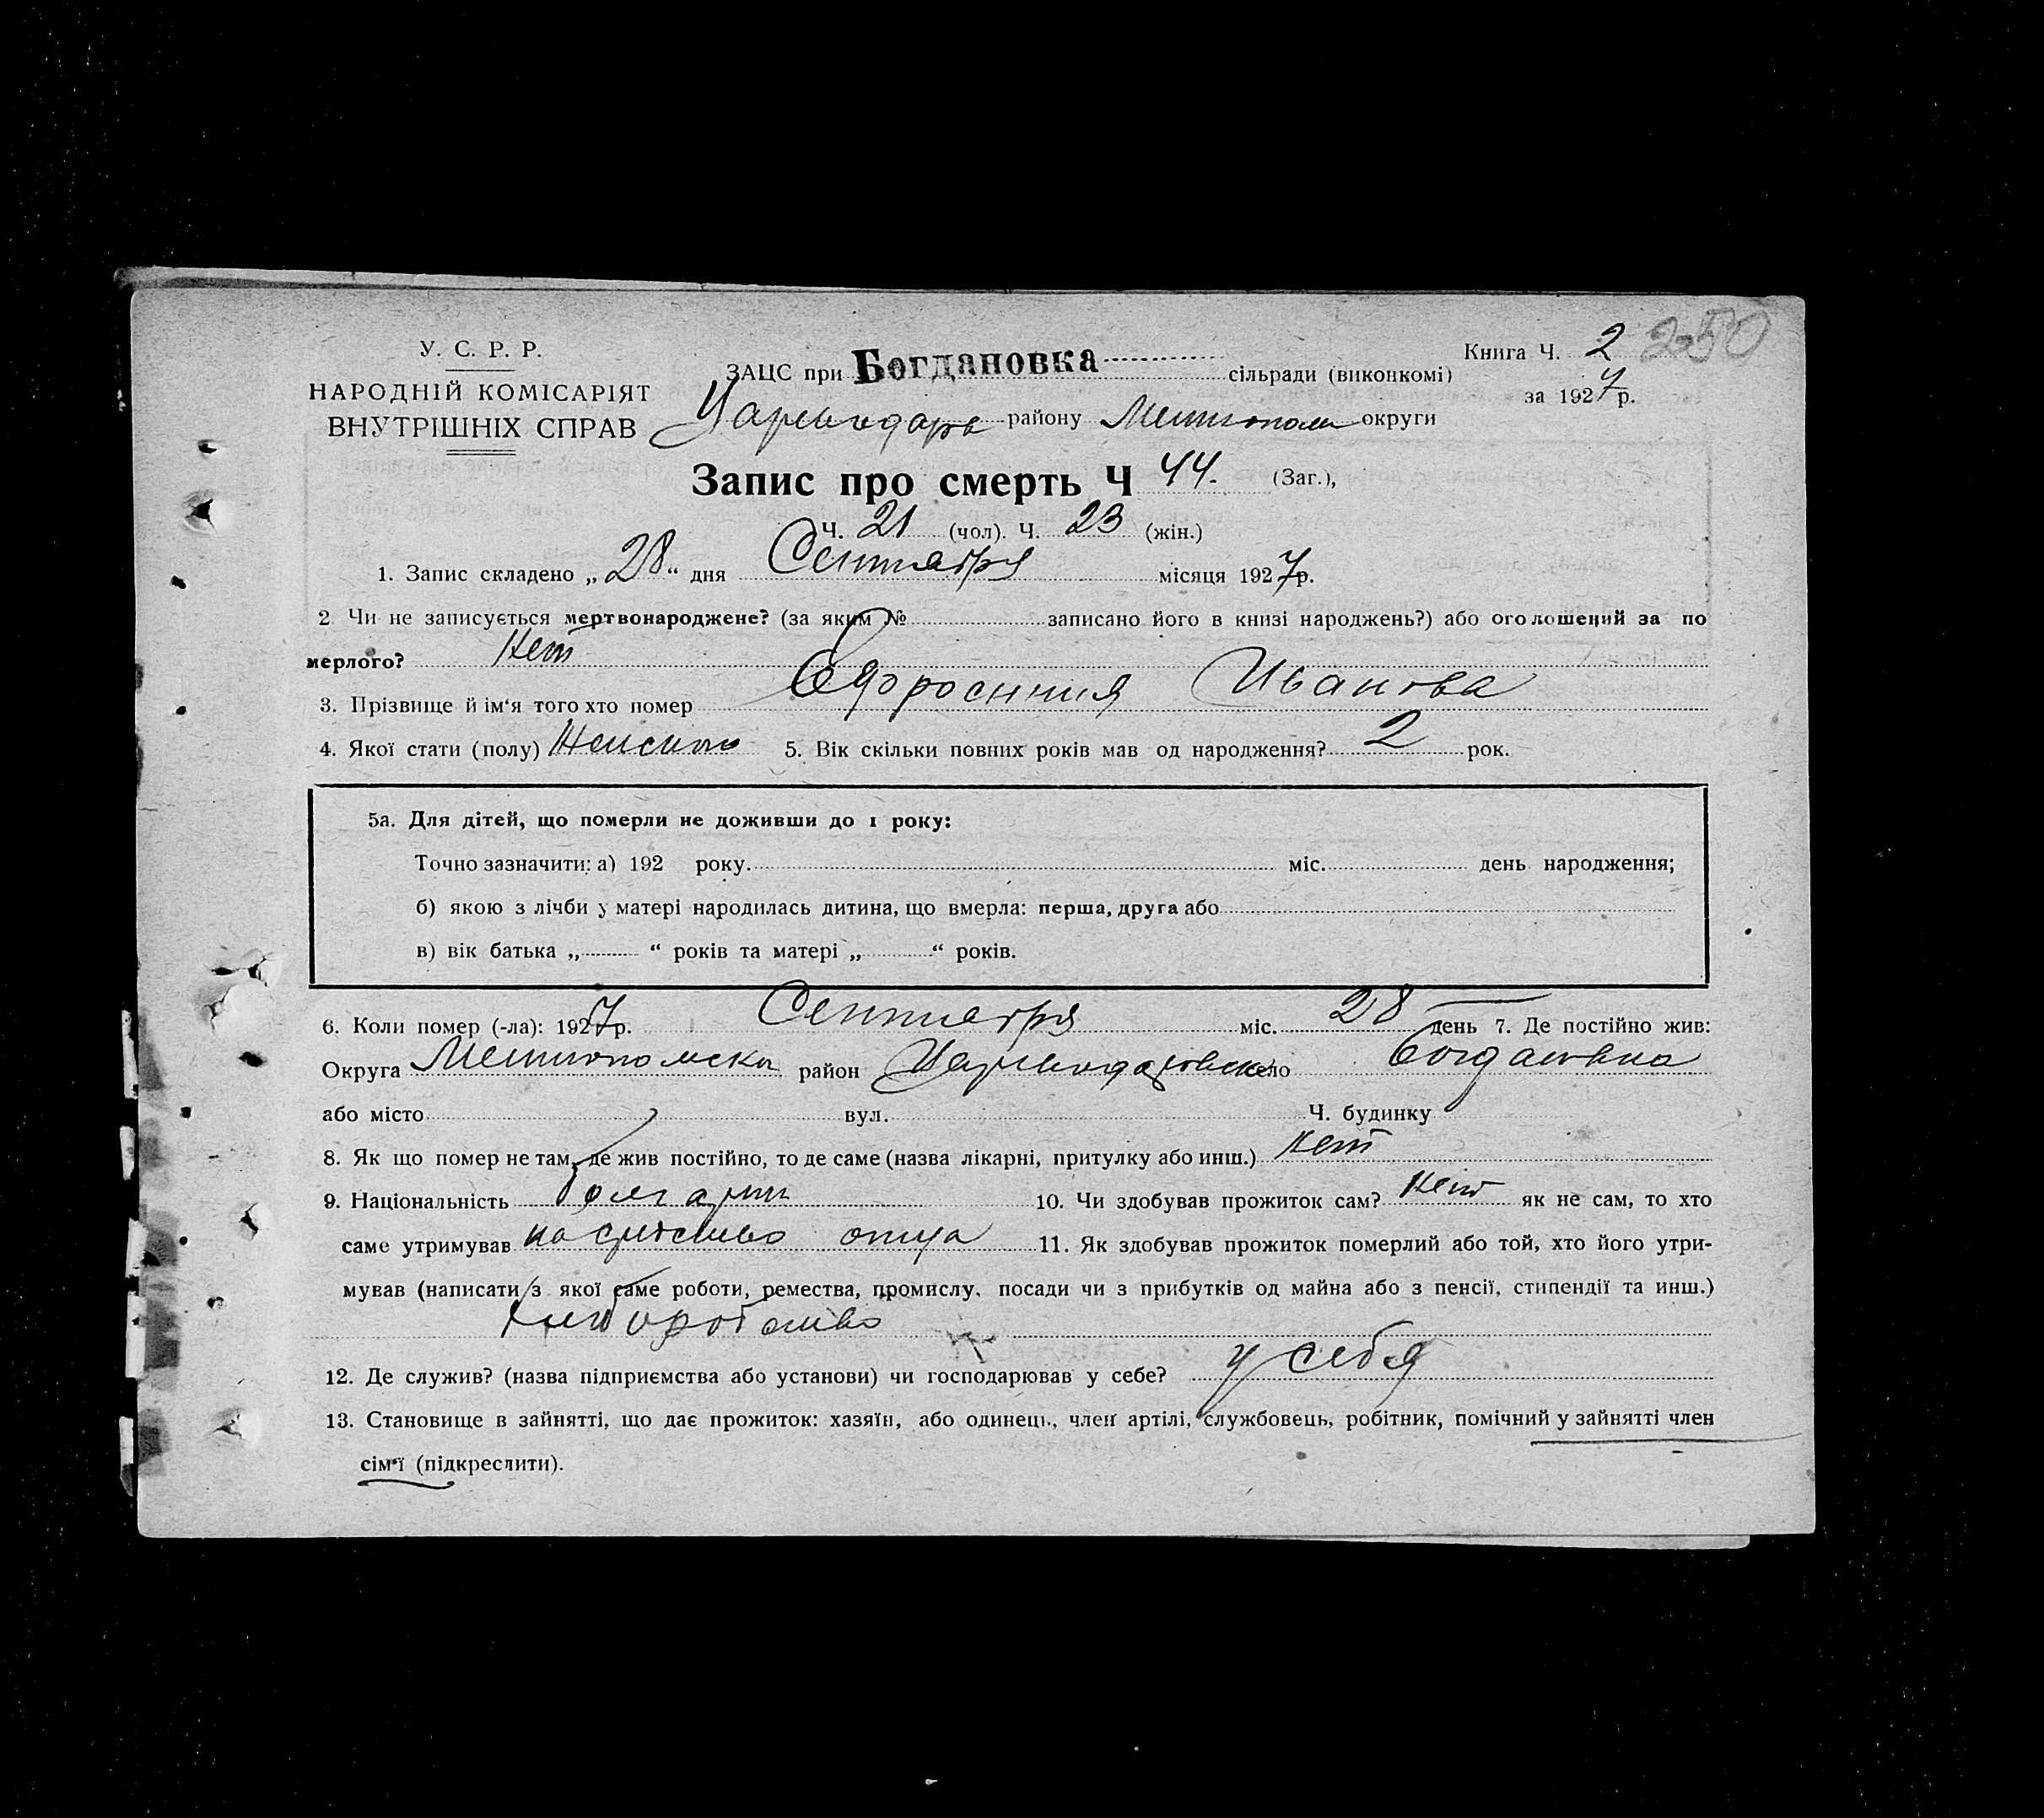 У. С. Р. Р.
НАРОДНІЙ КОМІСАРІЯТ
ВНУТРІШНІХ СПРАВ
ЗАЦС при Богдановка сільради (виконкомі)
району округи
Книга Ч. 2 250
за 1927 р.
Запис про смерть Ч 44. (Заг.),
Ч. 21 (чол). Ч. 23 (жін.)
1. Запис складено „28“ дня Сентября місяця 1927 р.
2 Чи не записується мертвонароджене? (за яким № записано його в книзі народжень?) або оголошений за по
мерлого? Нет
3. Прізвище й ім‘я того хто помер Иванова
4. Якої стати (полу) Женского 5. Вік скільки повних років мав од народження? 2 рок.
5а. Для дітей, що померли не доживши до 1 року:
Точно зазначити: а) 192 року. міс. день народження;
б) якою з лічби у матері народилась дитина, що вмерла: перша, друга або
в) вік батька „ “ років та матері „ “ років.
6. Коли помер (-ла): 1927 р. Сентября міс. 28 день 7. Де постійно жив:
Округа район село Богдановка
або місто вул. Ч. будинку
8. Як що помер не там, де жив постійно, то де саме (назва лікарні, притулку або инш.) нет
9. Національність 10. Чи здобував прожиток сам? Нет як не сам, то хто
саме утримував на средство отца 11. Як здобував прожиток померлий або той, хто його утри-
мував (написати з якої саме роботи, ремества, промислу, посади чи з прибутків од майна або з пенсії, стипендії та инш.)
12. Де служив? (назва підприємства або установи) чи господарював у себе? у себя
13. Становище в зайнятті, що дає прожиток: хазяїн, або одинець, член артілі, службовець, робітник, помічний у зайнятті член
сім‘ї (підкреслити).